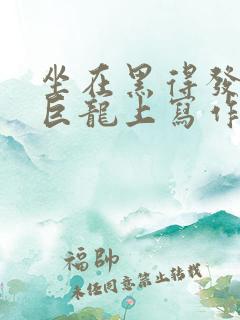 坐在黑得發
巨龍上寫作
福帥
未經同意禁止轉載